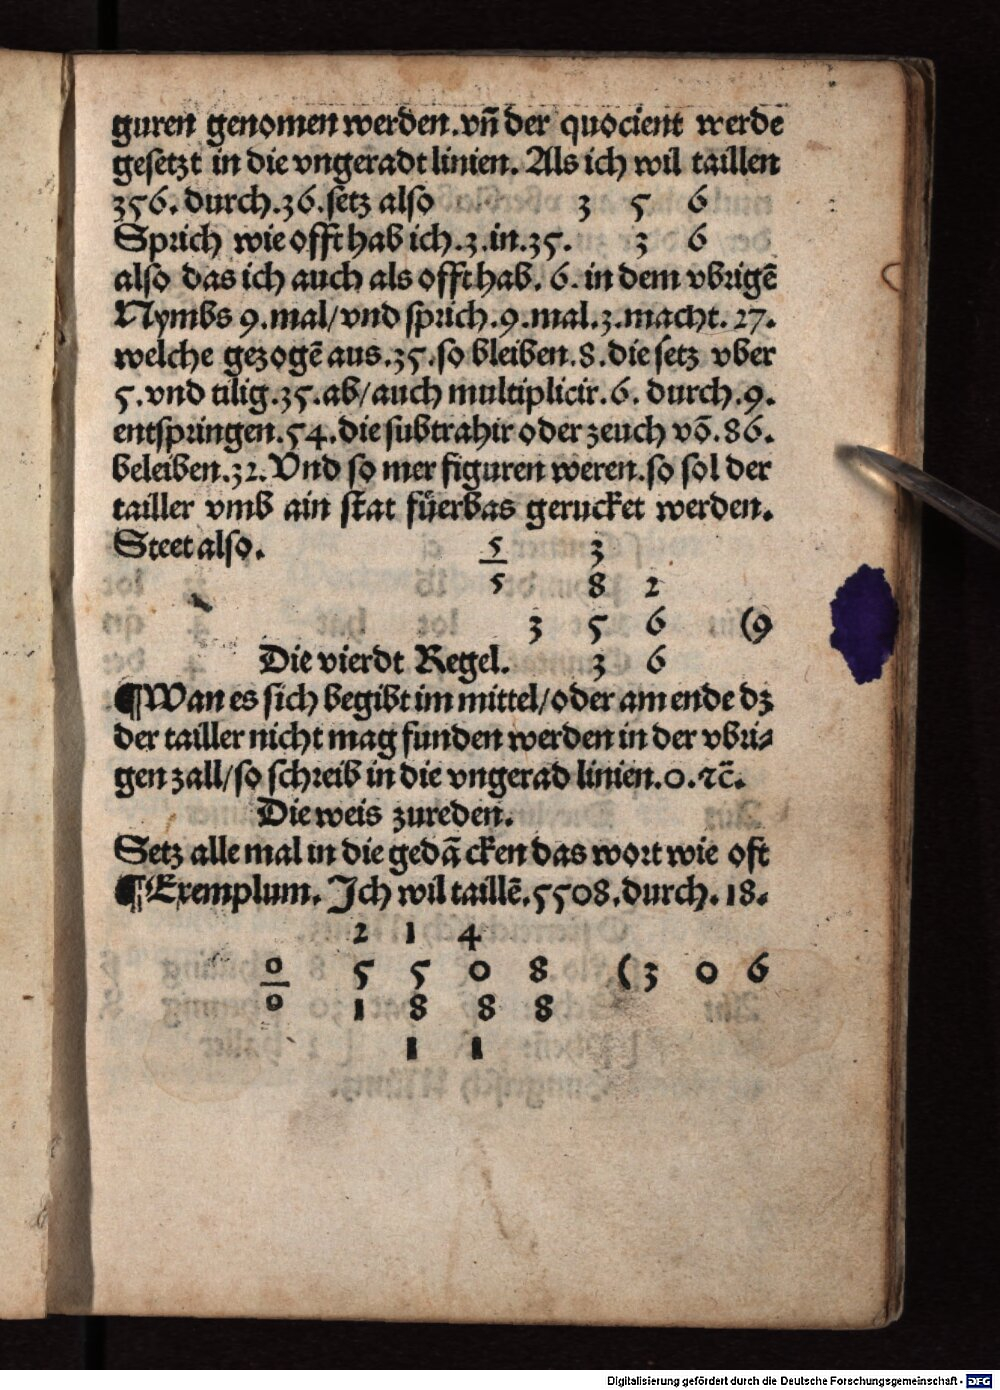 guren genomen werden.vn̄ der quocient werde
gesetzt in die vngeradt linien. Als ich wil taillen
356. durch.36.setz also 3 5 6
Sprich wie offt hab ich.3.in.35. 3 6
also das ich auch als offt hab. 6. in dem vbrigē
Nymbs 9.mal/vnd sprich.9.mal.3.macht. 27.
welche gezogē aus.35.so bleiben.8.die setz vber
5.vnd tilig.35.ab/auch multiplicir.6. durch.9.
entspringen.54.die subtrahir oder zeuch vō.86.
beleiben.32.Vnd so mer figuren weren.so sol der
tailler vmb ain stat füerbas gerucket werden.
Steet also. 5 3
5 8 2
3 5 6 (9
Die vierdt Regel. 3 6
¶Wan es sich begibt im mittel/oder am ende dz
der tailler nicht mag funden werden in der vbri⸗
gen zall/so schreib in die vngerad linien.0.⁊c̄.
Die weis zureden.
Setz alle mal in die gedācken das wort wie oft
¶Exemplum. Ich wil taillē.5508.durch.18.
2 1 4
0 5 5 0 8 (3 0 6
0 1 8 8 8
1 1
Digitalisierung gefördert durch die Deutsche Forschungsgemeinschaft - DFG